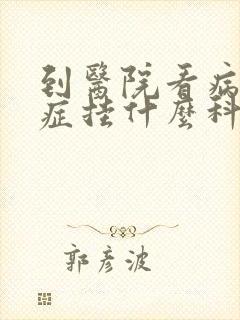 到醫院看病
症掛什麼科
郭彥波